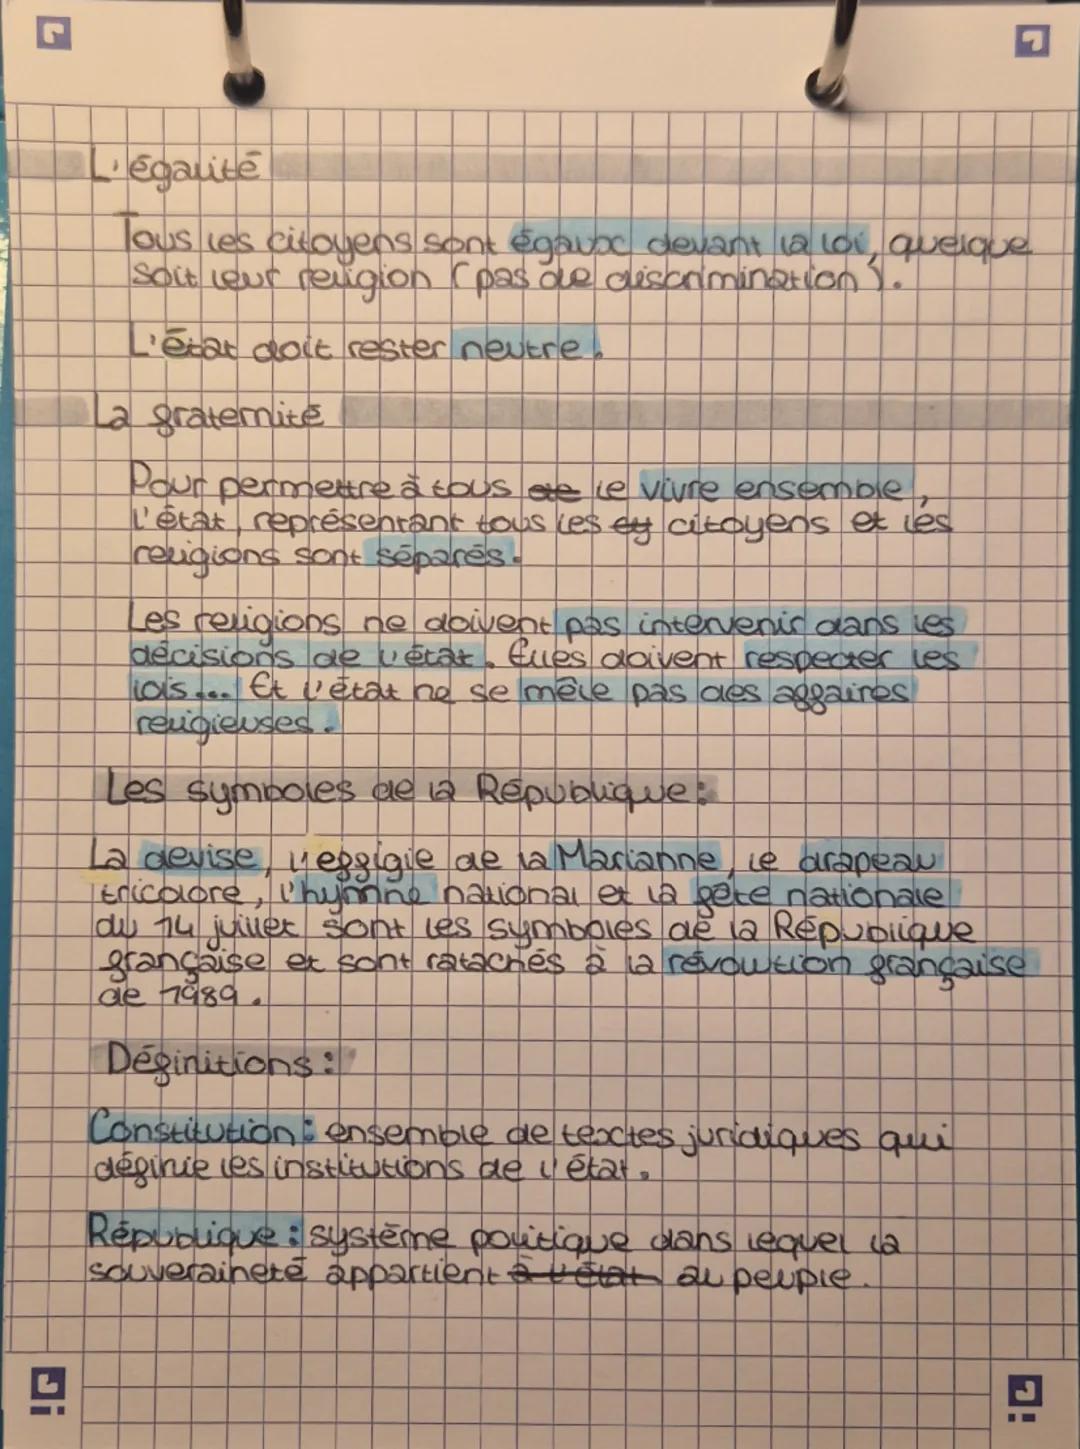 L'égalité
Tous les citoyens sont égaux devant la loi, quelque
soit leur religion (pas de discrimination).
L'état doit rester neutre.
La fraternité
Pour permettre à tous de le vivre ensemble,
l'état, représentant tous les ey citoyens et les
religions sont séparés.
Les religions ne doivent pas intervenir dans les
décisions de l'état. Elles doivent respecter les
lois... Et l'état ne se mêle pas des affaires
religieuses.
Les symboles de la République:
La devise, l'effigie de la Marianne, le drapeau
tricolore, l'hymne national et la fête nationale
du 14 juillet sont les symboles de la République
française et sont ratachés à la révolution française
de 1989.
Définitions:
Constitution: ensemble de textes juridiques qui
définie les institutions de l'état.
République: système politique dans lequel la
souveraineté appartient à l'état au peuple.